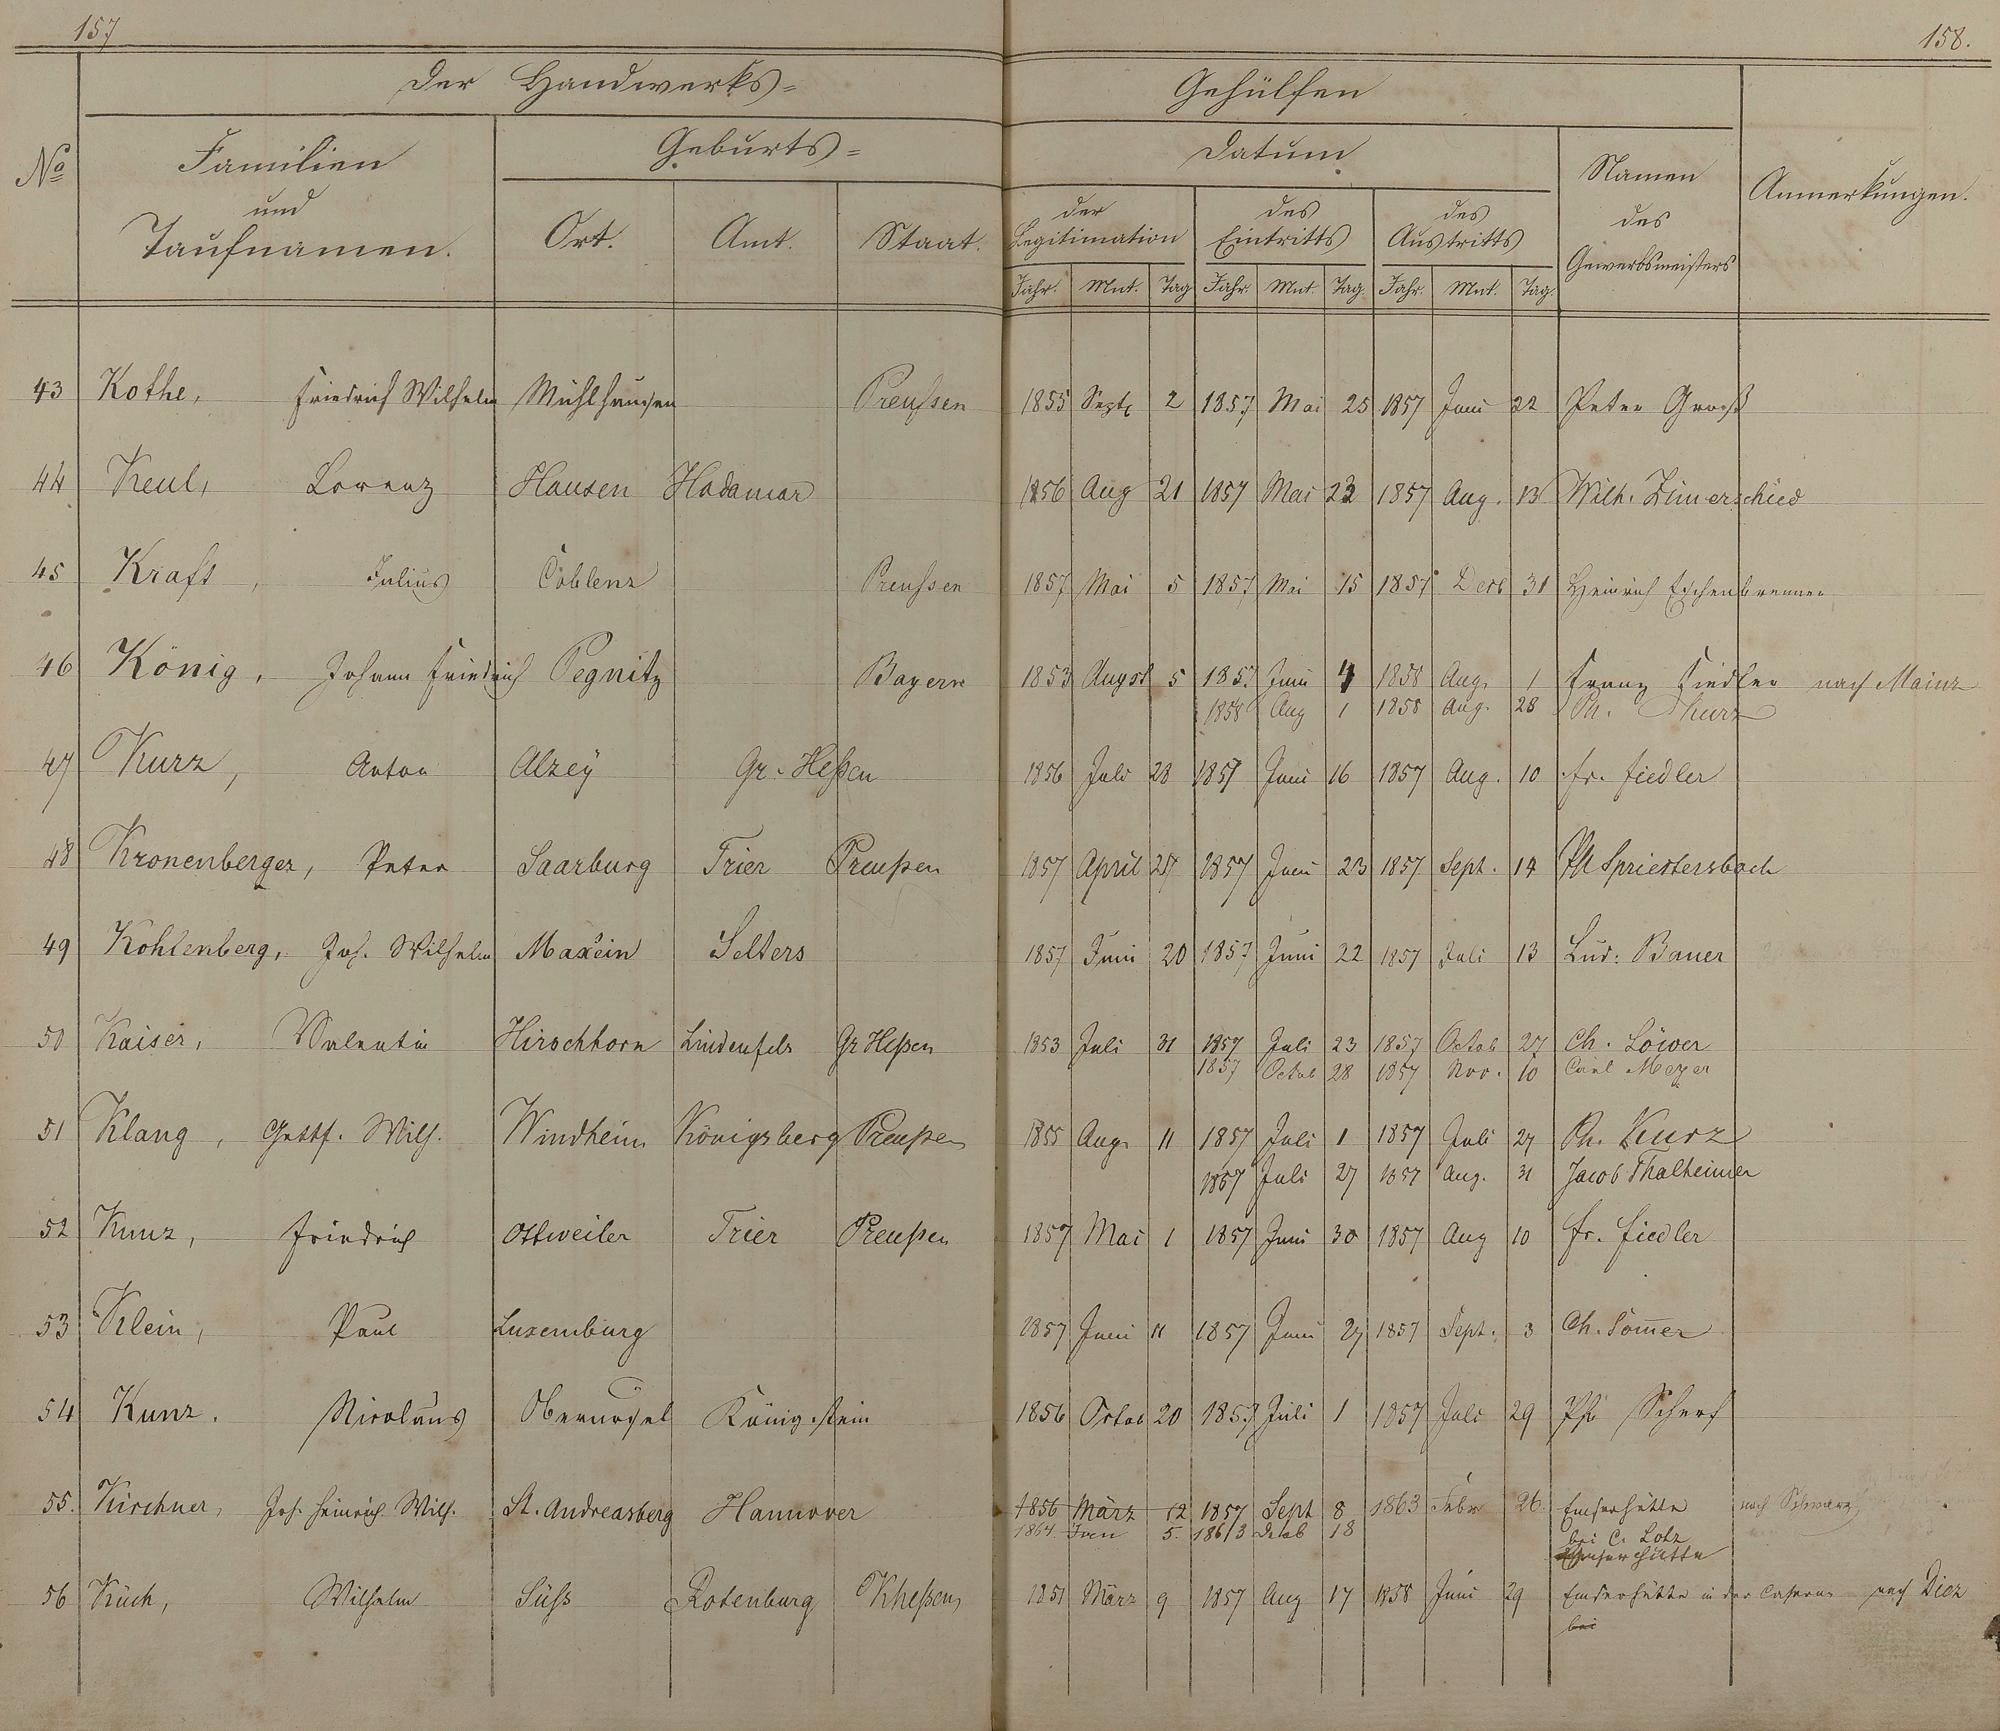 157
158.
Der Handwerks= Gehülfen
No
Familien und Taufnamen.
Geburts=
Ort. Amt. Staat.
Datum
der Legitimation
des Eintritts
des Austritts
Jahr. Mnt. Tag Jahr. Mnt. Tag. Jahr. Mnt. Tag.
Namen des Gewerbsmeisters
Anmerkungen.
43 Kothe, Friedrich Wilhelm Mühlhausen Preußen 1855 Sept 2 1857 Mai 25 1857 Juni 22 Peter Groß
44 Keul, Lorenz Hausen Hadamar 1856 Aug 21 1857 Mai 1857 Aug. 13 Wilh. Zimerschied
45 Kraft, Julius Coblenz Preußen 1857 Mai 5 1857 Mai 15 1857 Decb 31 Heinrich Eschenbrenner
46 König, Johann Friedrich Pegnitz Bayern 1853 Augst 5 1857 Juni 4 1858 Aug. 1 Franz Fiedler nach Mainz
1858 Aug 1 1858 Aug. 28 Ph. Kurz
47 Kurz, Anton Alzey Gr. Heßen 1856 Juli 28 1857 Juni 16 1857 Aug. 10 Fr. Fiedler
48 Kronenberger, Peter Saarburg Trier Preußen 1857 April 1857 Juni 23 1857 Sept. 14 Ph Spriestersbach
49 Kohlenberg, Joh. Wilhelm Maxein Selters 1857 Juni 20 1857 Juni 22 1857 Juli 13 Lud: Bauer
50 Kaiser, Valentin Hirschhorn Lindenfels Gr Heßen 1853 Juli 31 1857 Juli 23 1857 Octob 27 Ch. Löwer
1857 Octob 28 1857 Nov. 10 Carl Mezer
51 Klang, Gottf. Wilh. Windheim Königsberg Preußen 1855 Aug. 11 1857 Juli 1 1857 Juli 27 Ph. Kurz
1857 Juli 27 1857 Aug. 31 Jacob Thalheimer
52 Kunz, Friedrich Ottweiler Trier Preußen 1857 Mai 1 1857 Juni 30 1857 Aug 10 Fr. Fiedler
53 Klein, Paul Luxemburg 1857 Juni 11 1857 Juni 27 1857 Sept. 3 Ch. Som̅er
54 Kunz. Nicolaus Oberursel Königstein 1856 Octob 20 1857 Juli 1 1857 Juli 29 Ph Scherf
55. Kirchner, Joh. Heinrich Wilh. St. Andreasberg Hannover 1856 März 12 1857 Sept 8 1863 Febr 26. Emserhütte
1864. Jan 5. 1863 Decb 18 bei C. Lotz
Emserhütte
56 Küch, Wilhelm Süß Rotenburg Kheßen 1851 März 9 1857 Aug 17 1858 Juni 29 Emserhütte in der Caserne nach Diez
bei